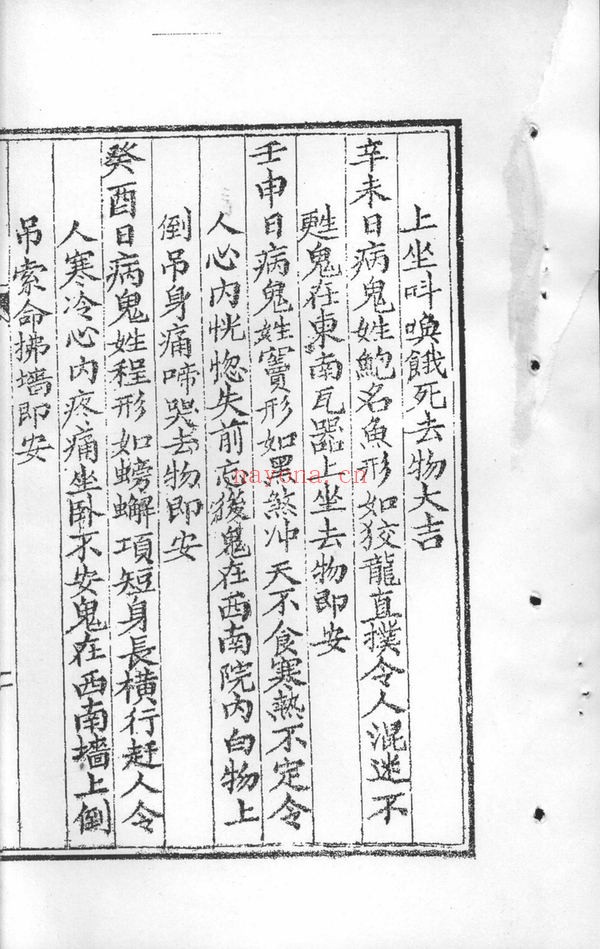 上坐叫喚餓死去物大吉
辛未日病鬼姓鮑名魚形如狡龍直撲令人混迷不
甦鬼在東南瓦器上坐去物即安
壬申日病鬼姓竇形如黑煞冲天不食寒熱不定令
人心内恍惚失前忘後鬼在西南院内白物上
倒吊身痛啼哭去物即安
癸酉日病鬼姓程形如螃蠏項短身長横行赶人令
人寒冷心内疼痛坐卧不安鬼在西南墙上倒
吊索命拂墙即安
nayona.cn